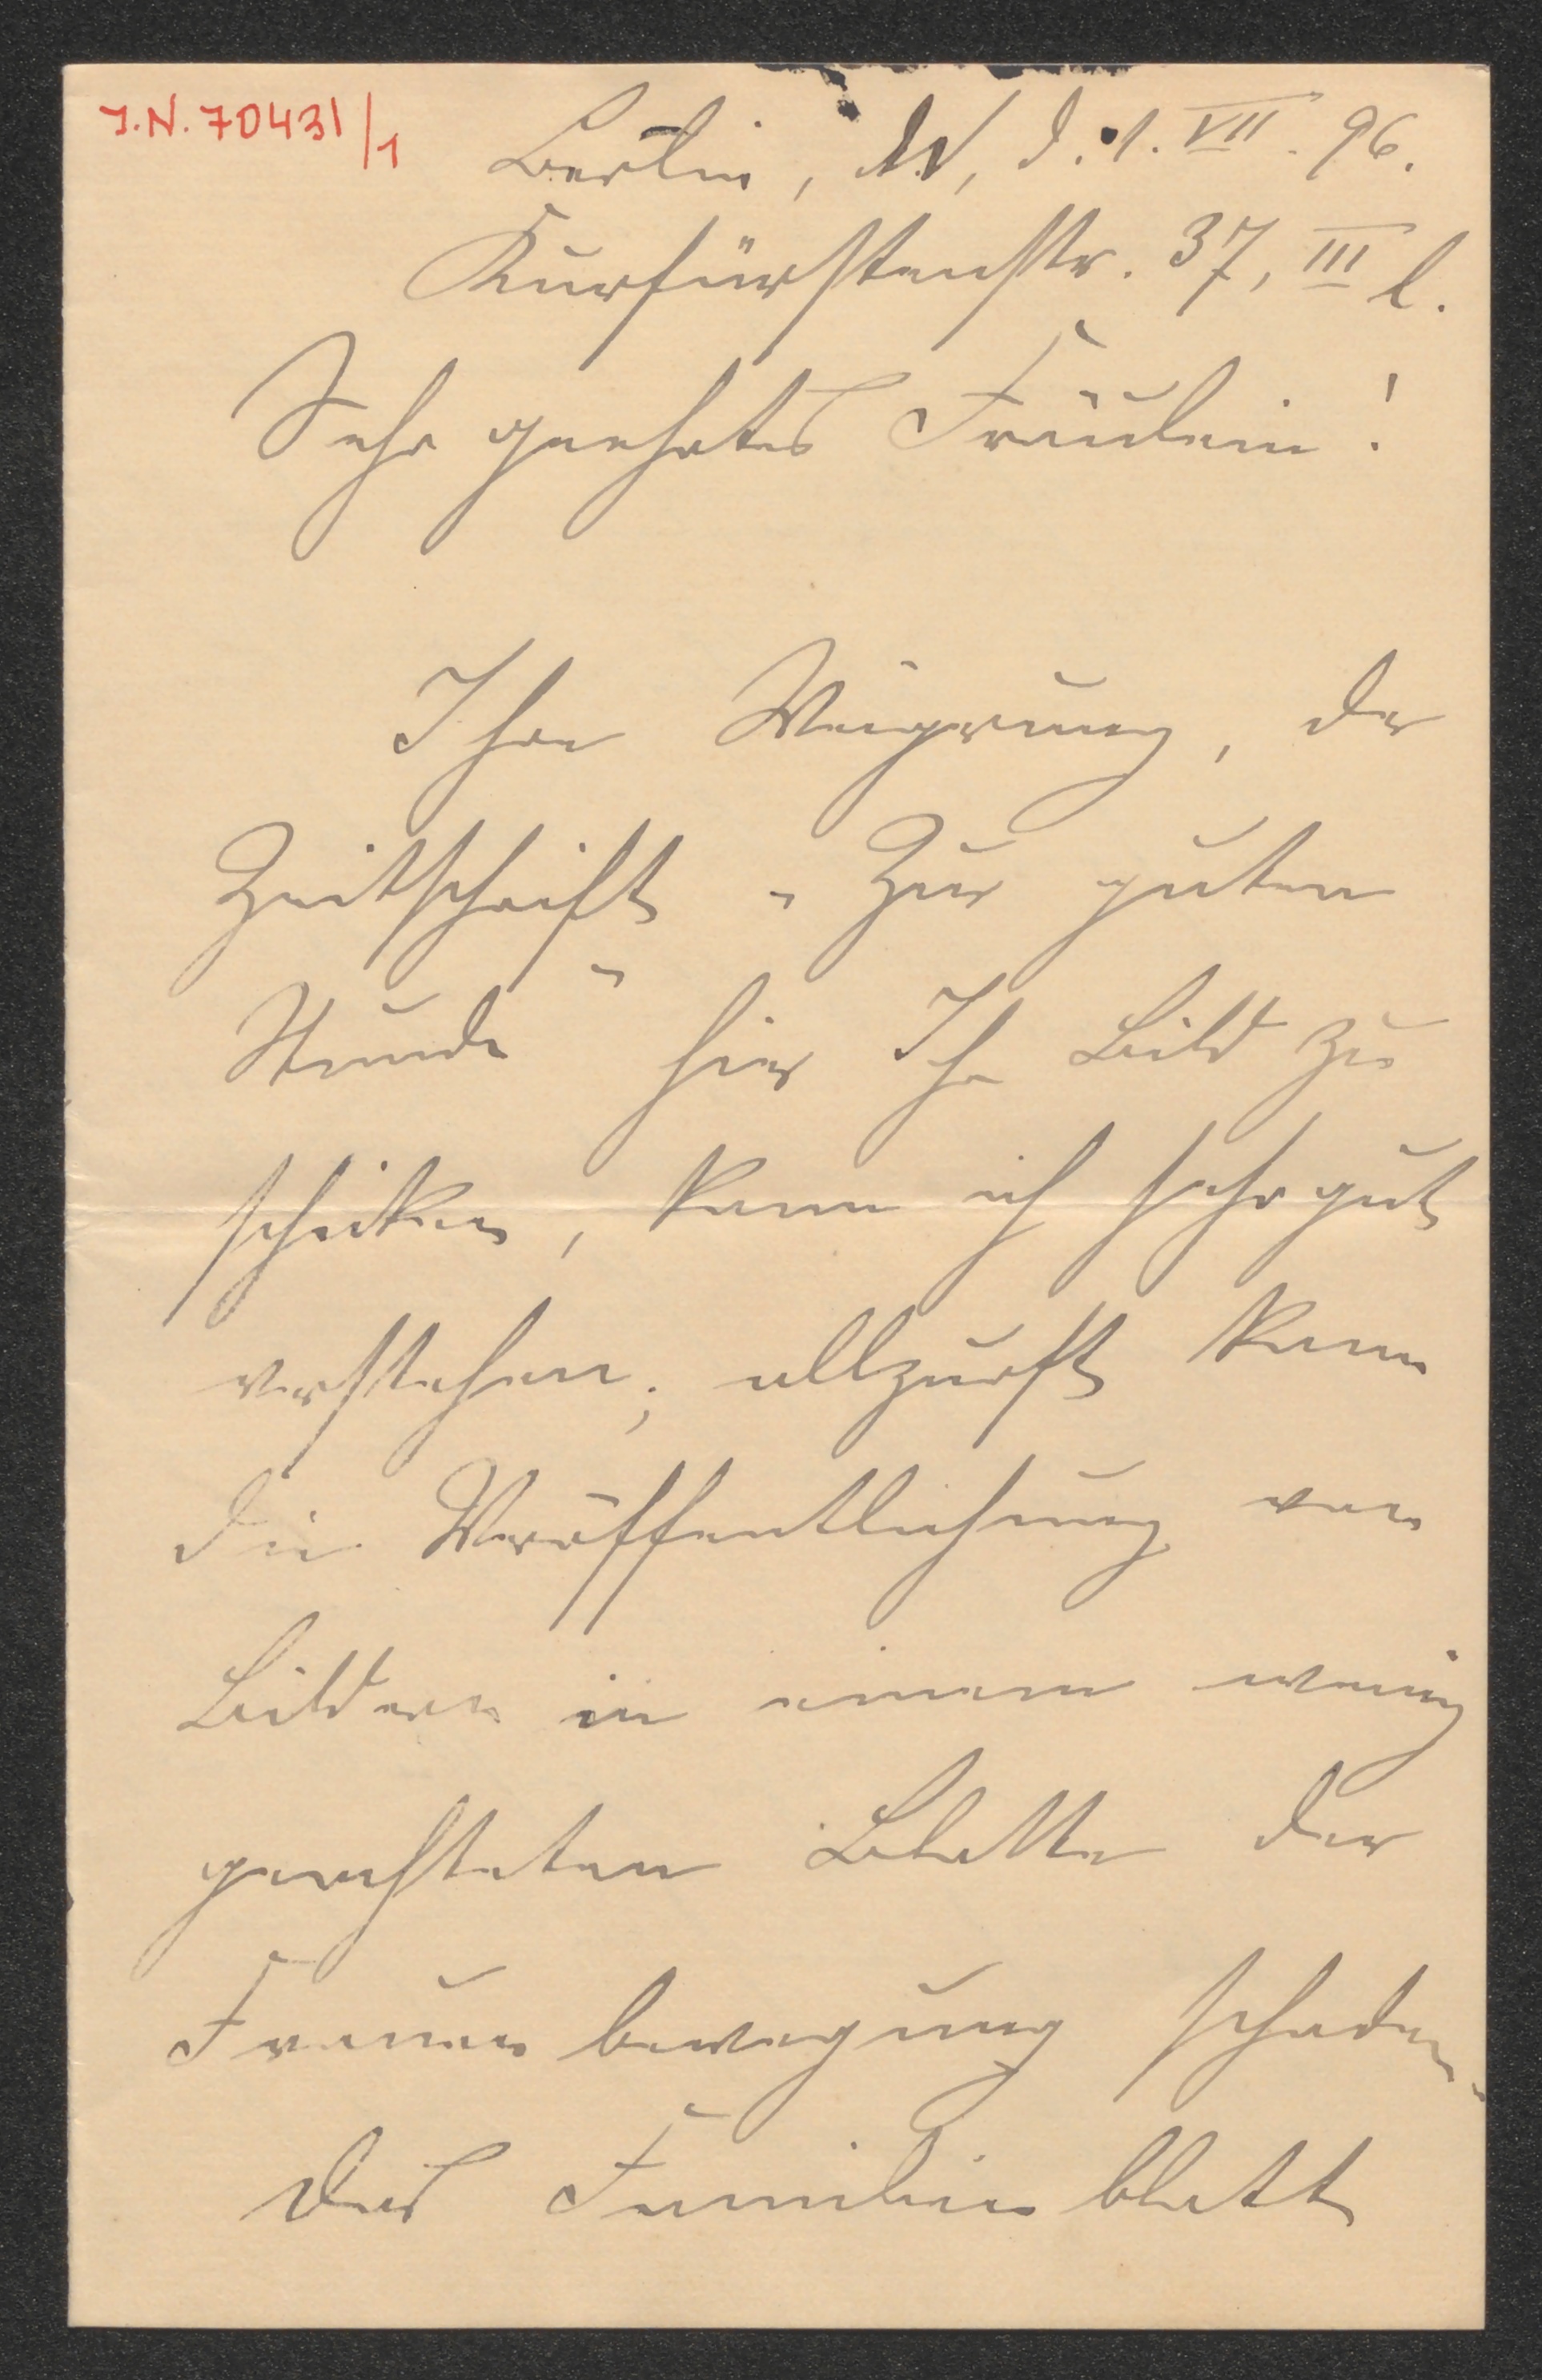 J.N. 70431/1
Berlin, W, d. 1. VII. 96.
Kurfürstenstr. 37, III l.
Sehr geehrtes Fräulein!
Ihre Weigerung, der
Zeitschrift „Zur guten
Stunde" hier Ihr Bild zu
schicken, kann ich sehr gut
verstehen; allzuoft kann
die Veröffentlichung von
Bildern in einem wenig
geachteten Blatte der
Frauenbewegung schaden.
Das Familienblatt